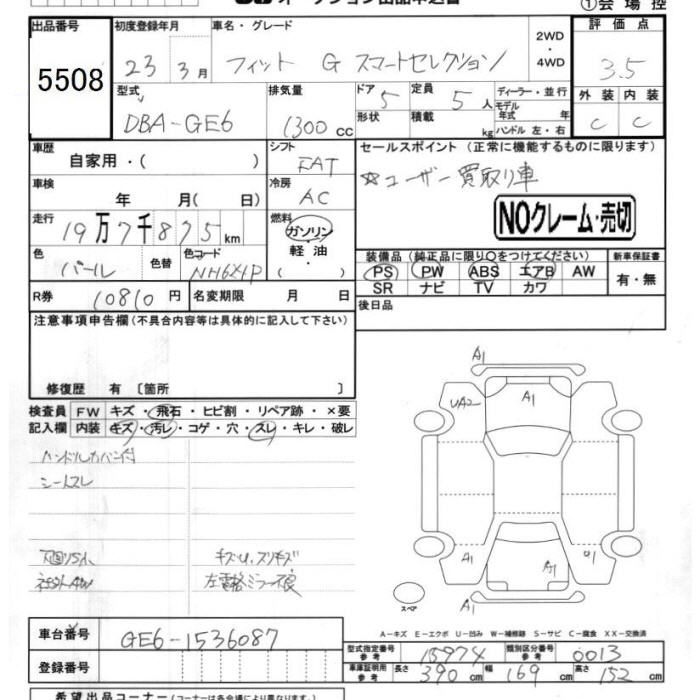 ①会場控
出品番号 初度登録年月 車名・グレード 2WD・4WD 評価点
5508 23 3月 フィット G スマートセレクション 3.5
型式 排気量 ドア 5 定員 5人 ディーラー・並行 外装 内装
DBA-GE6 1300cc 形状 積載 kg モデル年式 年 ハンドル 左・右 C C
車歴 自家用・( ) シフト FAT セールスポイント (正常に機能するものに限ります)
車検 年 月( 日) 冷房 AC ☆ユーザー買取り車
走行 19万7千875km 燃料 ガソリン・軽油・( ) NOクレーム・売切
色 パール 色替 色コード NH624P
装備品 (純正品に限り○をつけてください) 新車保証書
PS PW ABS エアB AW 有・無
SR ナビ TV カワ
R券 10810円 名変期限 月 日 後日品
注意事項申告欄 (不具合内容等は具体的に記入して下さい)
修復歴 有 〔箇所 〕
検査員 FW キズ・飛石・ヒビ割・リペア跡・×要
記入欄 内装 キズ・汚レ・コゲ・穴・スレ・キレ・破レ
ハンドルカバー付
シートスレ
キズU,スリキズ
社外AW 左電格ミラー不良
A1
UA2 A1
A1
A1 U1
A1
スペア
A-キズ E-エクボ U-凹み W-補修跡 S-サビ C-腐食 XX-交換済
車台番号 GE6-1536087
登録番号
型式指定番号 参考 15974 類別区分番号 参考 0013
車庫証明用 参考 長さ 390cm 幅 169cm 高さ 152cm
希望出品コーナー